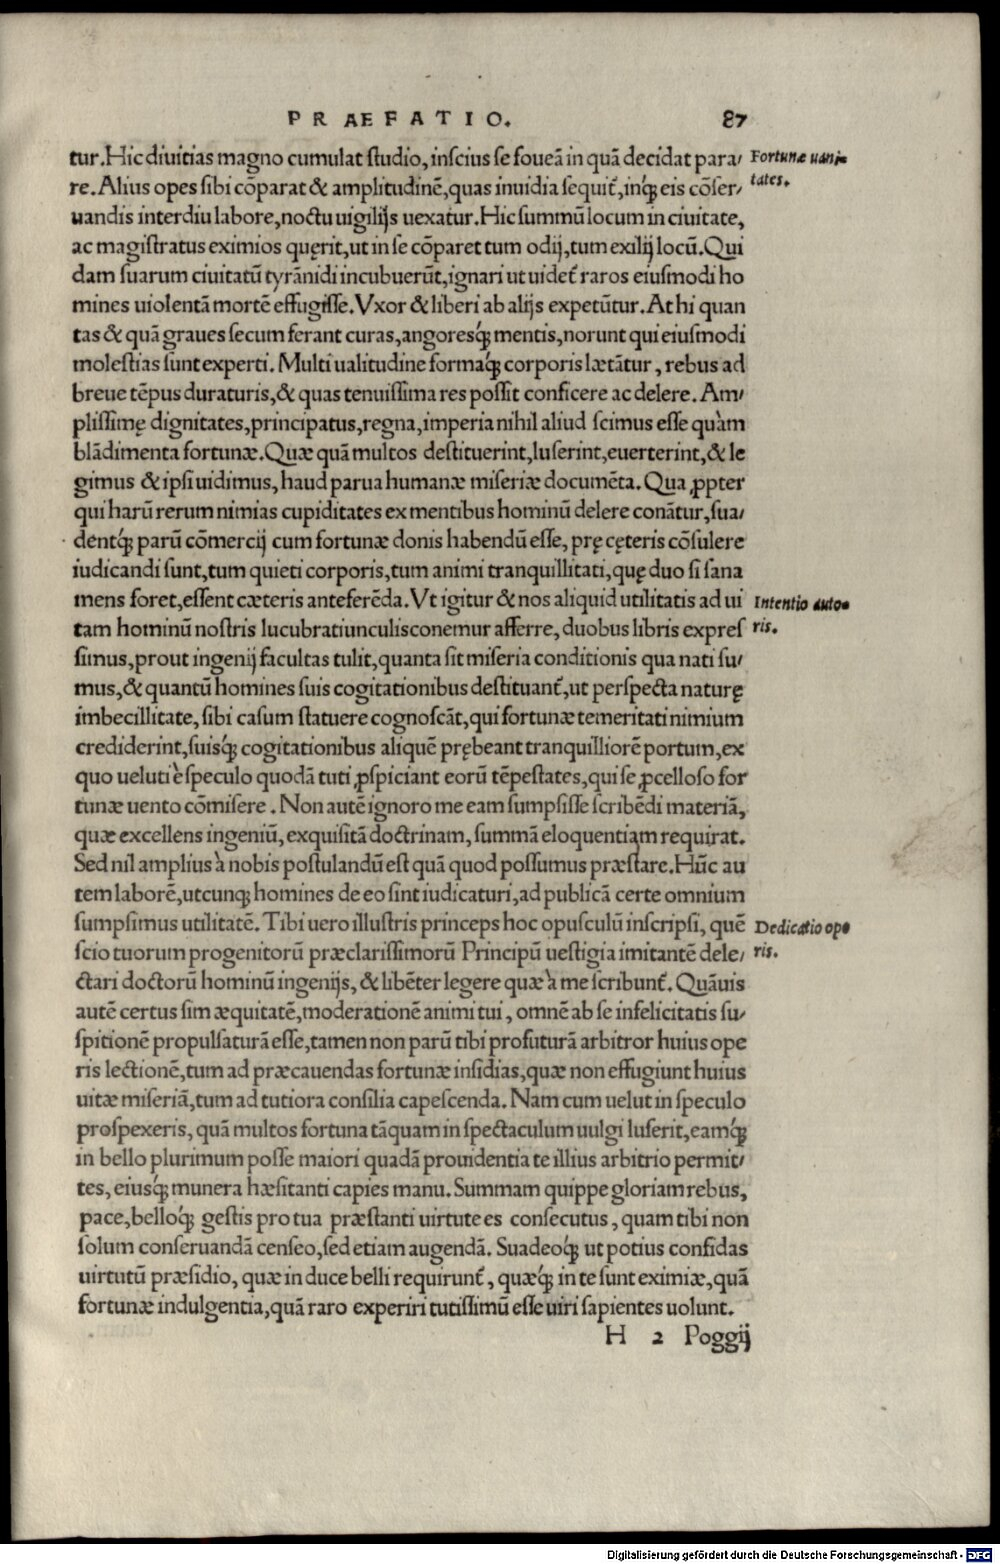 PRAEFATIO. 87
tur. Hic diuitias magno cumulat studio, inscius se foueā in quā decidat para/
re. Alius opes sibi cōparat & amplitudinē, quas inuidia sequit̃, inq́ꝫ eis cōser/
uandis interdiu labore, noctu uigilijs uexatur. Hic summū locum in ciuitate,
ac magistratus eximios quęrit, ut in se cōparet tum odij, tum exilij locū. Qui
dam suarum ciuitatū tyrānidi incubuerūt, ignari ut uidet̃ raros eiusmodi ho
mines uiolentā mortē effugisse. Vxor & liberi ab alijs expetūtur. At hi quan
tas & quā graues secum ferant curas, angoresq́ꝫ mentis, norunt qui eiusmodi
molestias sunt experti. Multi ualitudine formaq́ꝫ corporis lætātur, rebus ad
breue tēpus duraturis, & quas tenuissima res possit conficere ac delere. Am/
plissimę dignitates, principatus, regna, imperia nihil aliud scimus esse quàm
blādimenta fortunæ. Quæ quā multos destituerint, luserint, euerterint, & le
gimus & ipsi uidimus, haud parua humanæ miseriæ documēta. Qua ꝓpter
qui harū rerum nimias cupiditates ex mentibus hominū delere conātur, sua/
dentq́ꝫ parū cōmercij cum fortunæ donis habendū esse, prę cęteris cōsulere
iudicandi sunt, tum quieti corporis, tum animi tranquillitati, quę duo si sana
mens foret, essent cæteris anteferēda. Vt igitur & nos aliquid utilitatis ad ui
tam hominū nostris lucubratiunculis conemur afferre, duobus libris expres
simus, prout ingenij facultas tulit, quanta sit miseria conditionis qua nati su/
mus, & quantū homines suis cogitationibus destituant̃, ut perspecta naturę
imbecillitate, sibi casum statuere cognoscāt, qui fortunæ temeritati nimium
crediderint, suisq́ꝫ cogitationibus aliquē prębeant tranquilliorē portum, ex
quo ueluti è speculo quodā tuti ꝓspiciant eorū tēpestates, qui se ꝓcelloso for
tunæ uento cōmisere. Non autē ignoro me eam sumpsisse scribēdi materiā,
quæ excellens ingeniū, exquisitā doctrinam, summā eloquentiam requirat.
Sed nil amplius à nobis postulandū est quā quod possumus præstare. Hūc au
tem laborē, utcunqꝫ homines de eo sint iudicaturi, ad publicā certe omnium
sumpsimus utilitatē. Tibi uero illustris princeps hoc opusculū inscripsi, quē
scio tuorum progenitorū præclarissimorū Principū uestigia imitantē dele/
ctari doctorū hominū ingenijs, & libēter legere quæ à me scribunt̃. Quāuis
autē certus sim æquitatē, moderationē animi tui, omnē ab se infelicitatis su/
spitionē propulsaturā esse, tamen non parū tibi profuturā arbitror huius ope
ris lectionē, tum ad præcauendas fortunæ insidias, quæ non effugiunt huius
uitæ miseriā, tum ad tutiora consilia capescenda. Nam cum uelut in speculo
prospexeris, quā multos fortuna tāquam in spectaculum uulgi luserit, eamq́ꝫ
in bello plurimum posse maiori quadā prouidentia te illius arbitrio permit/
tes, eiusq́ꝫ munera hæsitanti capies manu. Summam quippe gloriam rebus,
pace, belloq́ꝫ gestis pro tua præstanti uirtute es consecutus, quam tibi non
solum conseruandā censeo, sed etiam augendā. Suadeoq́ꝫ ut potius confidas
uirtutū præsidio, quæ in duce belli requirunt̃, quæq́ꝫ in te sunt eximiæ, quā
fortunæ indulgentia, quā raro experiri tutissimū esse uiri sapientes uolunt.
H 2 Poggij
Fortunæ uani/
tates.
Intentio auto=
ris.
Dedicatio ope
ris.
Digitalisierung gefördert durch die Deutsche Forschungsgemeinschaft - DFG